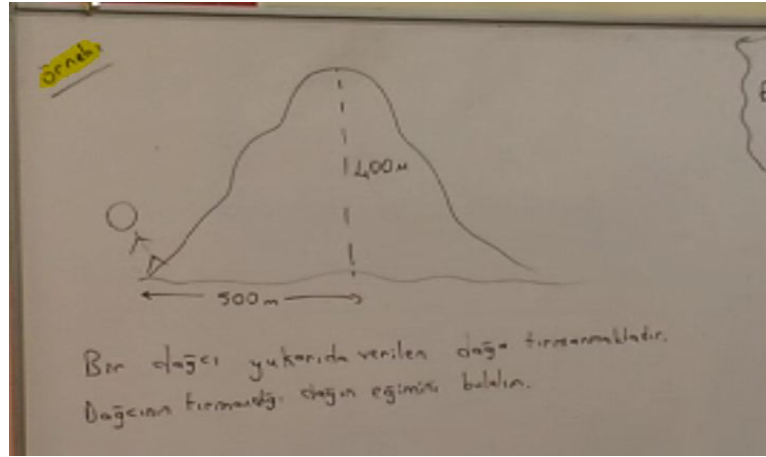 örnek:
400m
500m
Bir dağcı yukarıda verilen dağa tırmanmaktadır.
Dağcının tırmandığı dağın eğimini bulalım.